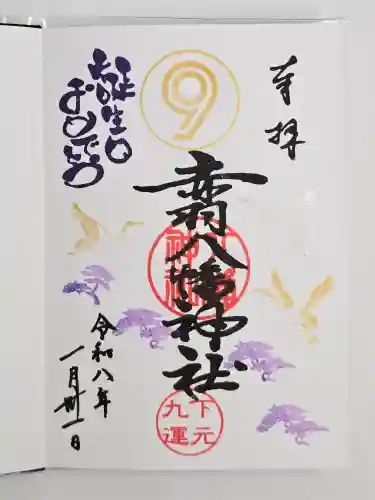 奉拝
9
赤羽八幡神社
下元
九運
誕生日
おめでとう
令和八年
一月卅一日